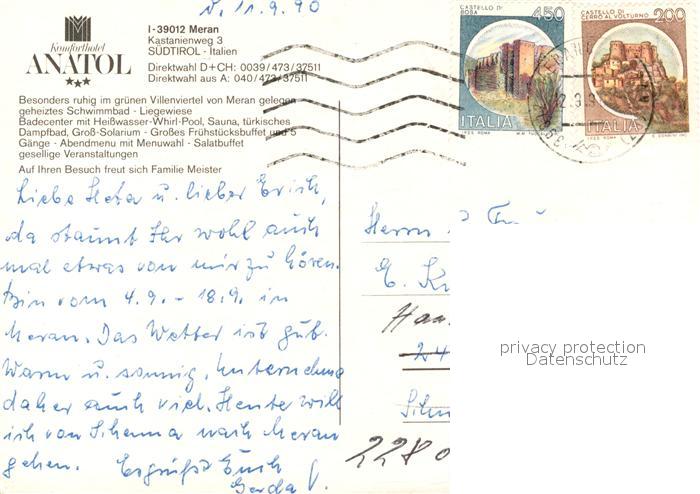 v. 11.9.90
Komforthotel
ANATOL
I-39012 Meran
Kastanienweg 3
SÜDTIROL - Italien
Direktwahl D+CH: 0039/473/37511
Direktwahl aus A: 040/473/37511
Besonders ruhig im grünen Villenviertel von Meran gelegen
geheiztes Schwimmbad - Liegewiese
Badecenter mit Heißwasser-Whirl-Pool, Sauna, türkisches
Dampfbad, Groß-Solarium - Großes Frühstücksbuffet und 5
Gänge - Abendmenu mit Menuwahl - Salatbuffet
gesellige Veranstaltungen
Auf Ihren Besuch freut sich Familie Meister
Liebe Heta u. lieber Erich,
da staunt Ihr wohl auch
mal etwas von mir zu hören.
Bin vom 4.9. - 18.9. in
Meran. Das Wetter ist gut.
Warm u. sonnig. Unternehme
daher auch viel. Heute will
ich von Schenna nach Meran
gehen. Es grüßt Euch
Gerda
CASTELLO DI
BOSA
450
ITALIA
CASTELLO DI
CERRO AL VOLTURNO
200
ITALIA
Herrn
E.
2280
privacy protection
Datenschutz